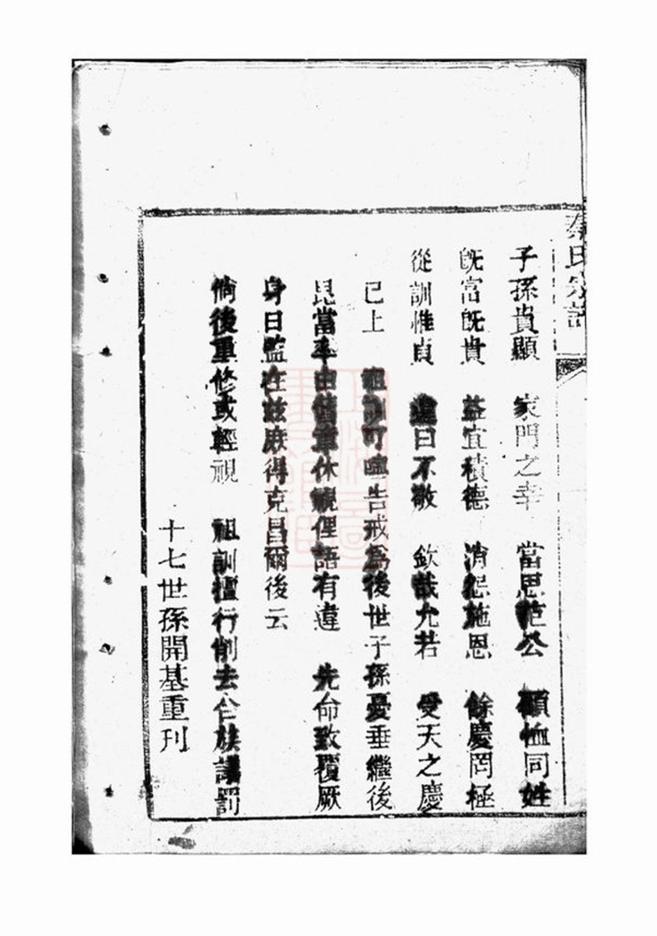 氏宗譜
子孫貴顯 家門之幸 當思范公 顧恤同姓
既富既貴 益宜積德 消怨施恩 餘慶罔極
從訓惟貞 違曰不敬 欽哉允若 受天之慶
已上 祖訓叮嚀告戒為後世子孫憂垂繼後
昆當率由舊章休視俚語有違 先命致覆厥
身日監在兹庶得克昌爾後云
倘後重修或輕視 祖訓擅行削去合族議罰
十七世孫開基重刊